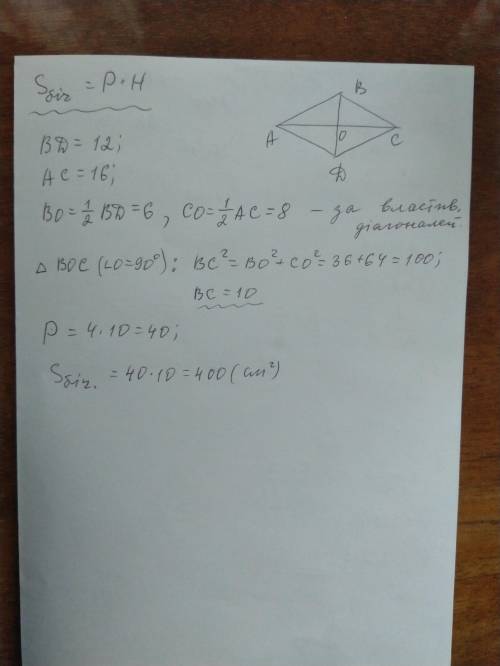 Sбіч = P·H
B
A
O
C
D
BD = 12;
AC = 16;
BO = 1/2 BD = 6, CO = 1/2 AC = 8 – за властив. діагоналей.
△ BOC (∠O=90°): BC² = BO² + CO² = 36 + 64 = 100;
BC = 10
P = 4·10 = 40;
Sбіч. = 40·10 = 400 (см²)